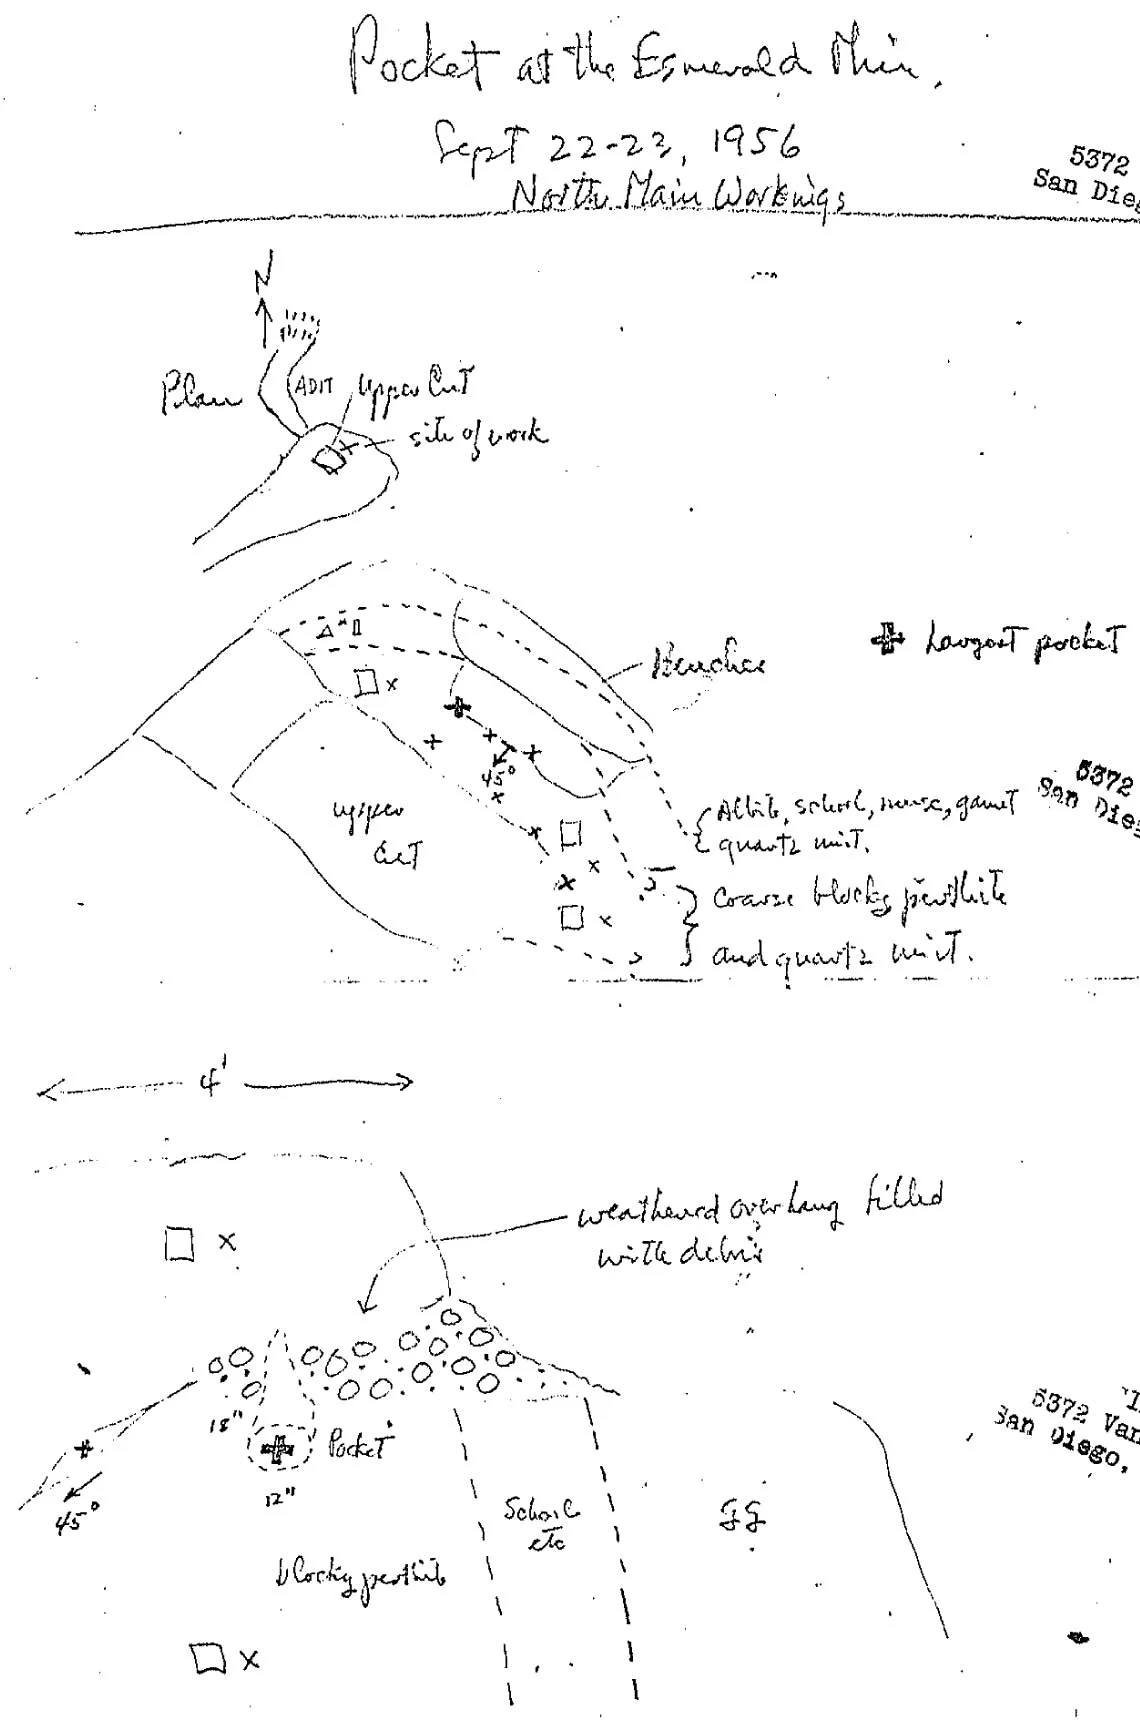 Pocket at the Esmerald Min.
Sept 22-23, 1956
North Main Workings
5372
San Dieg
N
Plan
ADIT
Upper Cut
site of work
Benches
Largest pocket
45°
upper
Cut
Albite, schorl, musc, garnet
quartz mixt.
5372
San Dieg
Coarse blocky perthite
and quartz mixt.
4'
weathered overhang filled
with debris
18"
Pocket
12"
45°
5372 Van
San Diego,
Schorl
etc
GG
blocky perthite